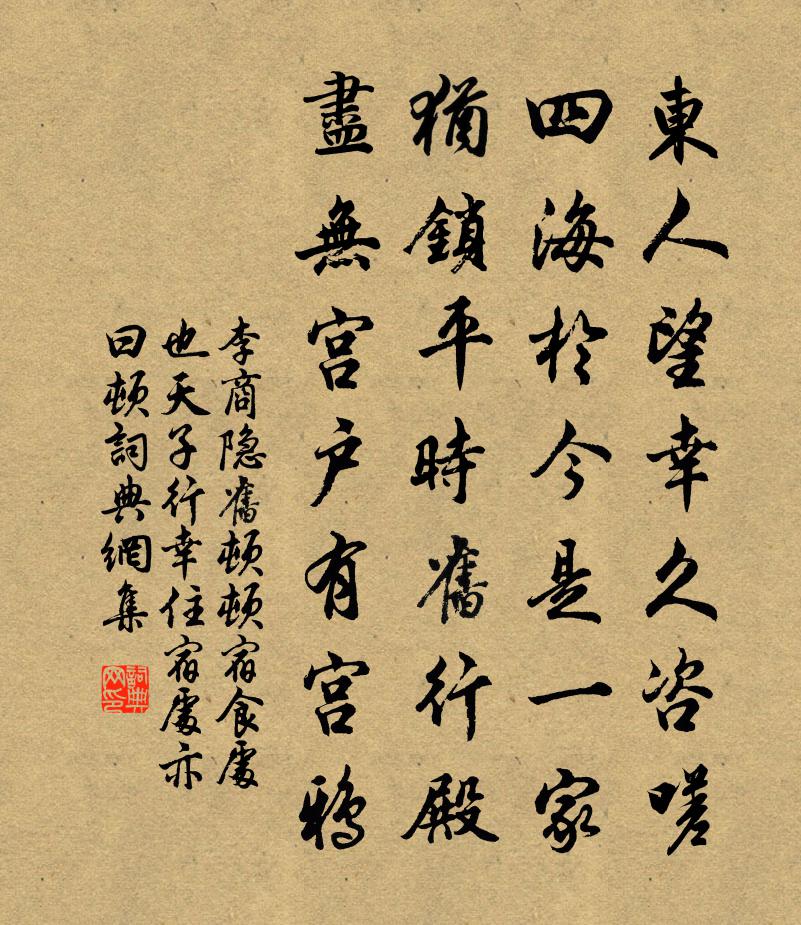 東人望幸久咨嗟
四海於今是一家
猶鎖平時舊行殿
盡無宮户有宮鴉
李商隐舊頓頓宿食處
也天子行幸住宿處亦
曰頓詞典網集
詞典
网印